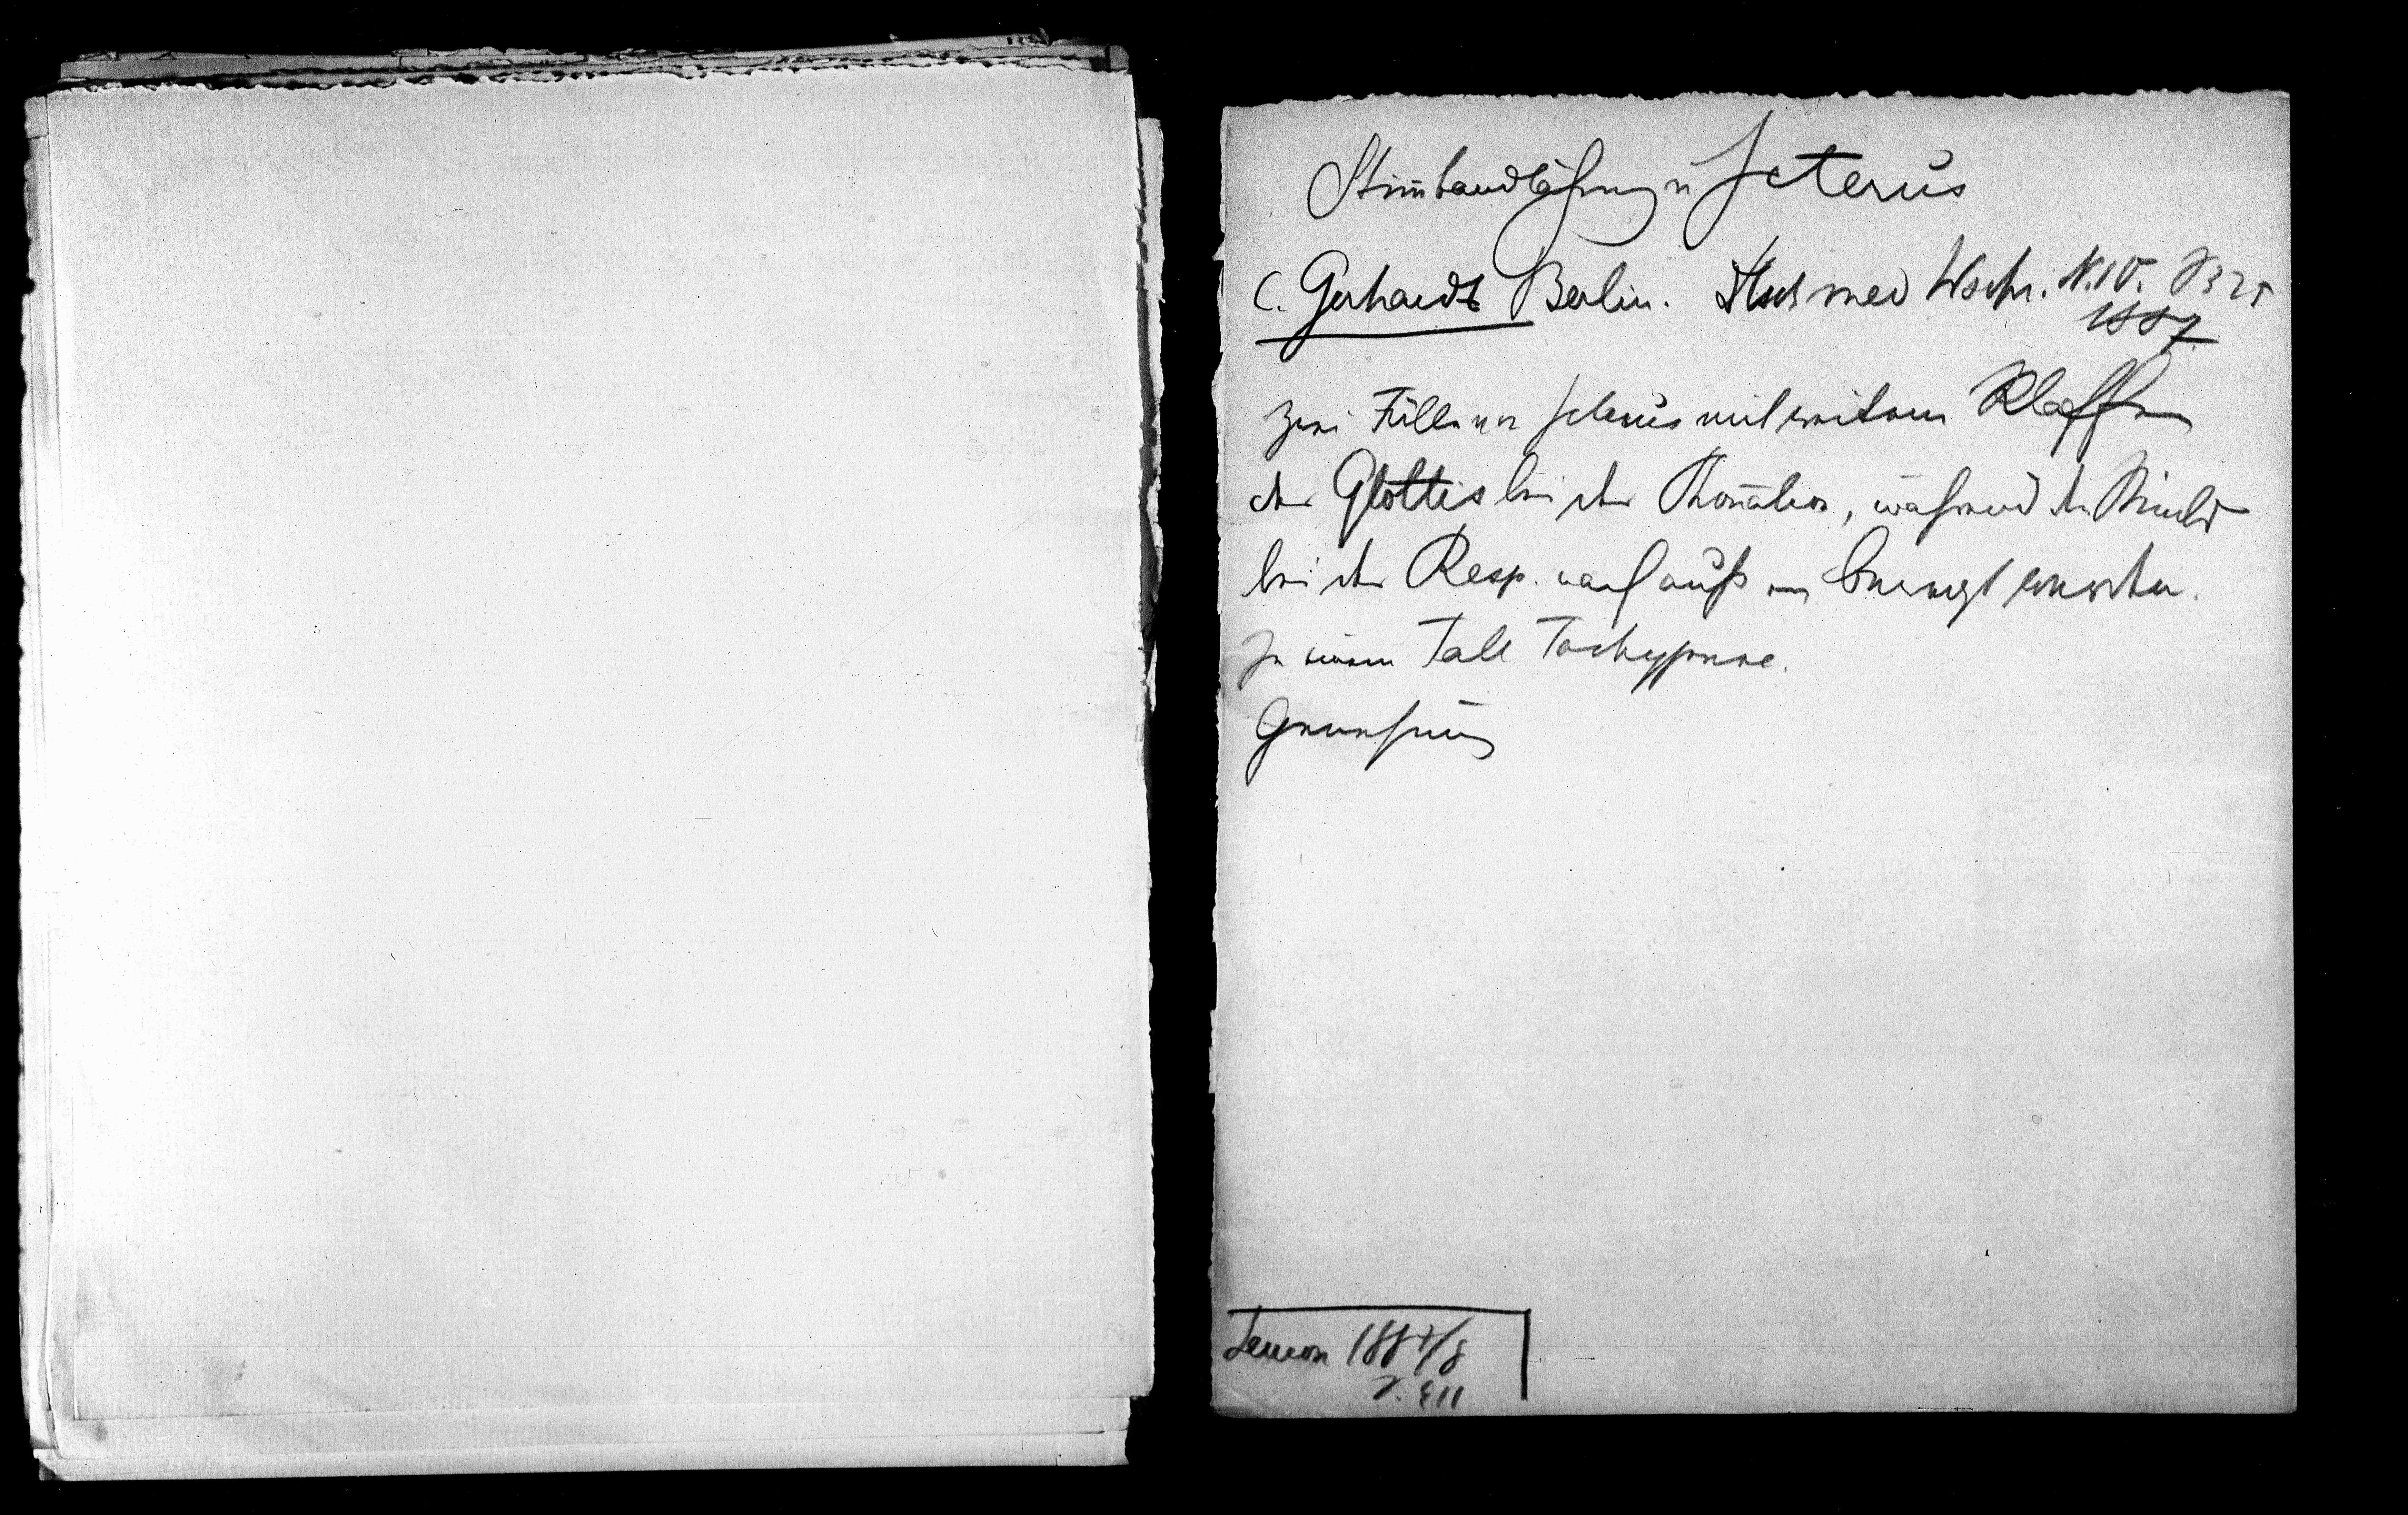 Stim̄bandlähmung u Icterus
C. Gerhardt Berlin. Dtsch med Wschr. N.10. S 325
1887
Zwei Fälle von Icterus mit weitem Klaffen
der Glottis bei der Phonation, während die Bänder
bei der Resp. nach außen bewegt wurden.
In einem Fall Tachypnoe.
Genesung
Semon 1887/8
S. 311